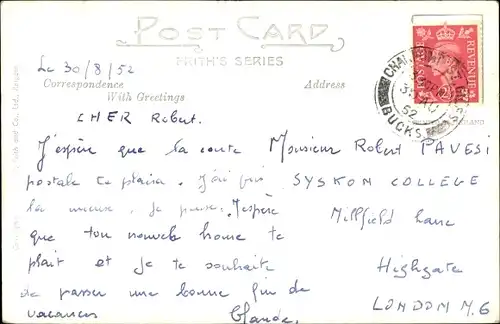 POST CARD
FRITH'S SERIES
Le 30/8/52
Correspondence
Address
With Greetings
CHER Robert.
J'espère que la carte
postale te plaira. J'ai pris
la mieux. Je pense. J'espère
que ton nouvelle home te
plait et je te souhaite
de passer une bonne fin de
vacances
Claude.
Monsieur Robert PAVESI
SYSKON COLLEGE
Millfield Lane
Highgate
LONDON N.6
REVENUE
CHALFONT ST
52
BUCKS